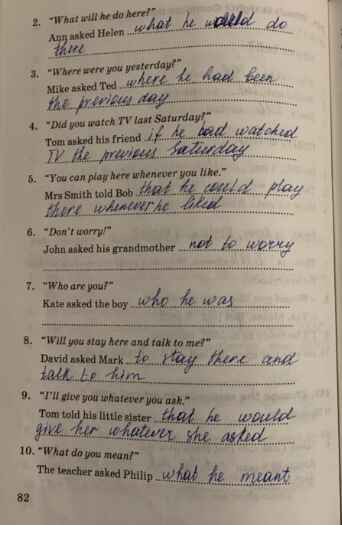 2. "What will he do here?"
Ann asked Helen what he would do
there
3. "Where were you yesterday?"
Mike asked Ted where he had been
the previous day
4. "Did you watch TV last Saturday?"
Tom asked his friend if he had watched
TV the previous Saturday
5. "You can play here whenever you like."
Mrs Smith told Bob that he could play
there whenever he liked
6. "Don't worry!"
John asked his grandmother not to worry
7. "Who are you?"
Kate asked the boy who he was
8. "Will you stay here and talk to me?"
David asked Mark to stay there and
talk to him
9. "I'll give you whatever you ask."
Tom told his little sister that he would
give her whatever she asked
10. "What do you mean?"
The teacher asked Philip what he meant
82